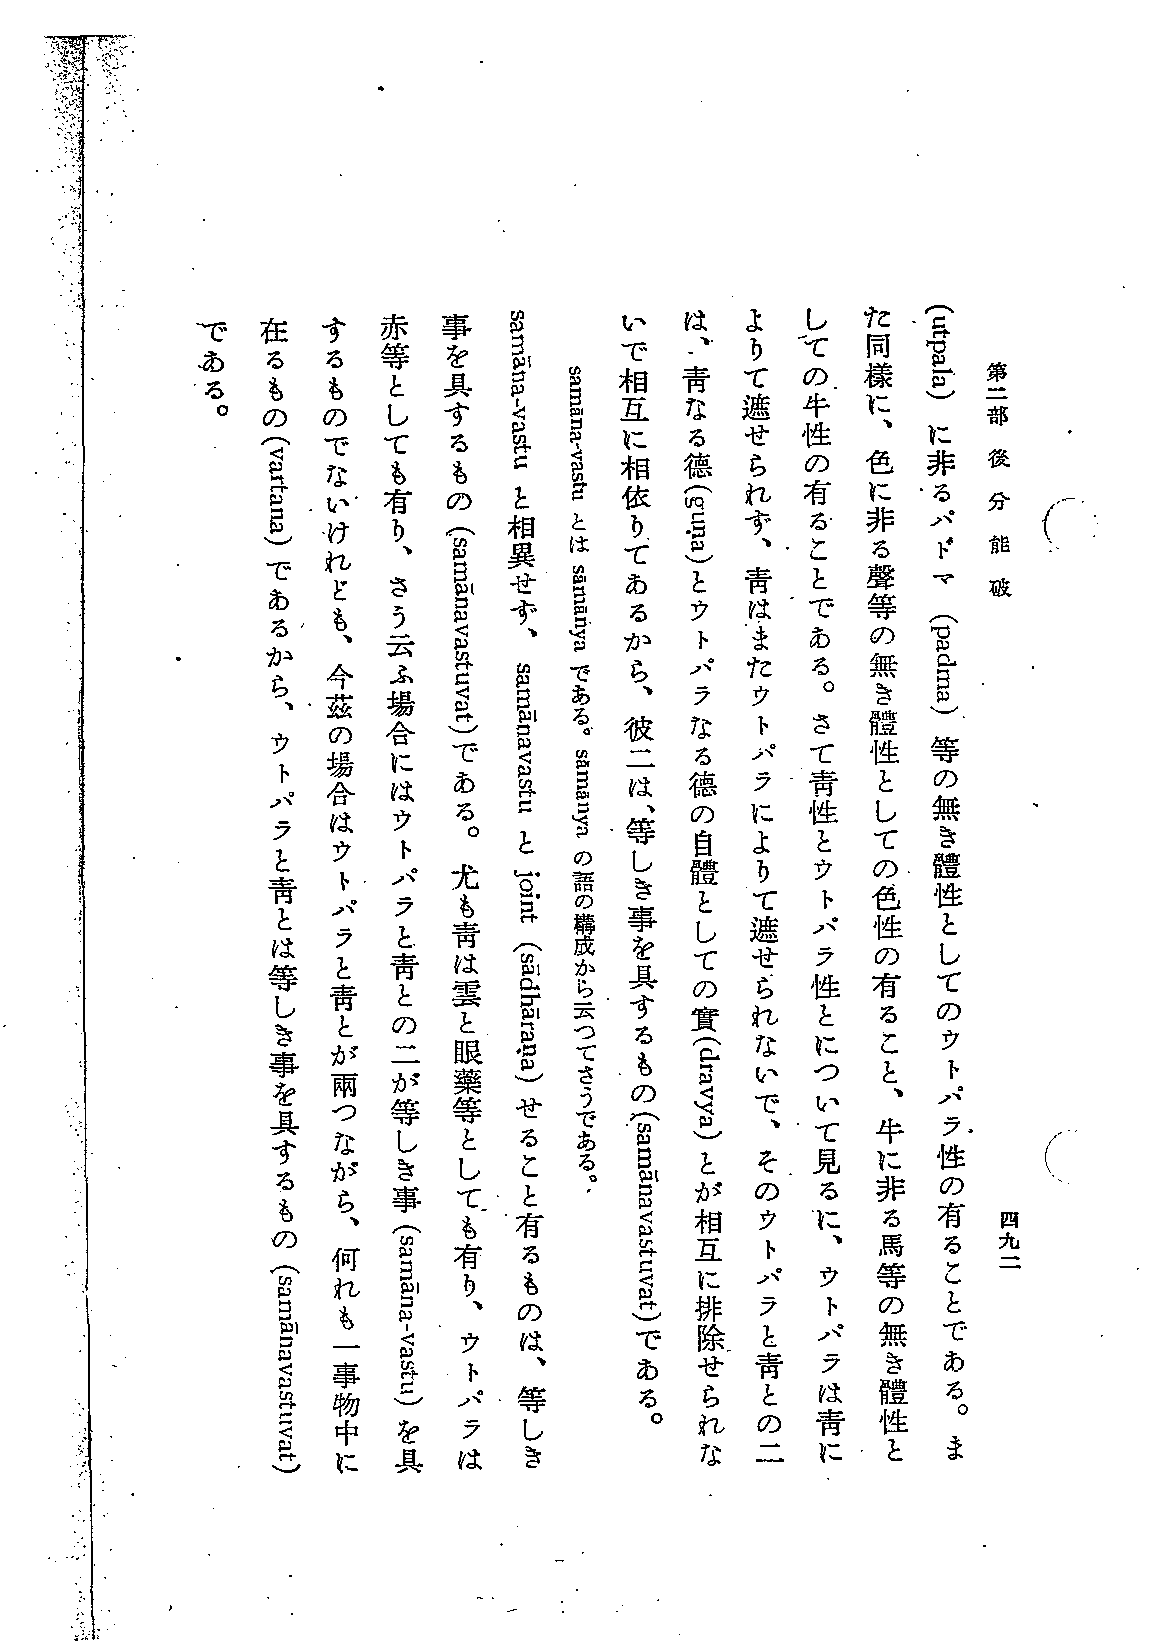 第二部 後分能破
四九二
(utpala) に非るパドマ (padma) 等の無き體性としてのウトパラ性の有ることである。ま
た同樣に、色に非る聲等の無き體性としての色性の有ること、牛に非る馬等の無き體性と
しての牛性の有ることである。さて靑性とウトパラ性とについて見るに、ウトパラは靑に
よりて遮せられず、靑はまたウトパラによりて遮せられないで、そのウトパラと靑との二
は、靑なる德(guṇa)とウトパラなる德の自體としての實(dravya)とが相互に排除せられな
いで相互に相依りてあるから、彼二は、等しき事を具するもの(samānavastuvat)である。
samāna-vastu とは sāmānya である。sāmānya の語の構成から云つてさうである。
samāna-vastu と相異せず、samānavastu と joint (sādhāraṇa) せること有るものは、等しき
事を具するもの (samānavastuvat)である。尤も靑は雲と眼藥等としても有り、ウトパラは
赤等としても有り、さう云ふ場合にはウトパラと靑との二が等しき事 (samāna-vastu) を具
するものでないけれども、今茲の場合はウトパラと靑とが兩つながら、何れも一事物中に
在るもの(vartana)であるから、ウトパラと靑とは等しき事を具するもの (samānavastuvat)
である。